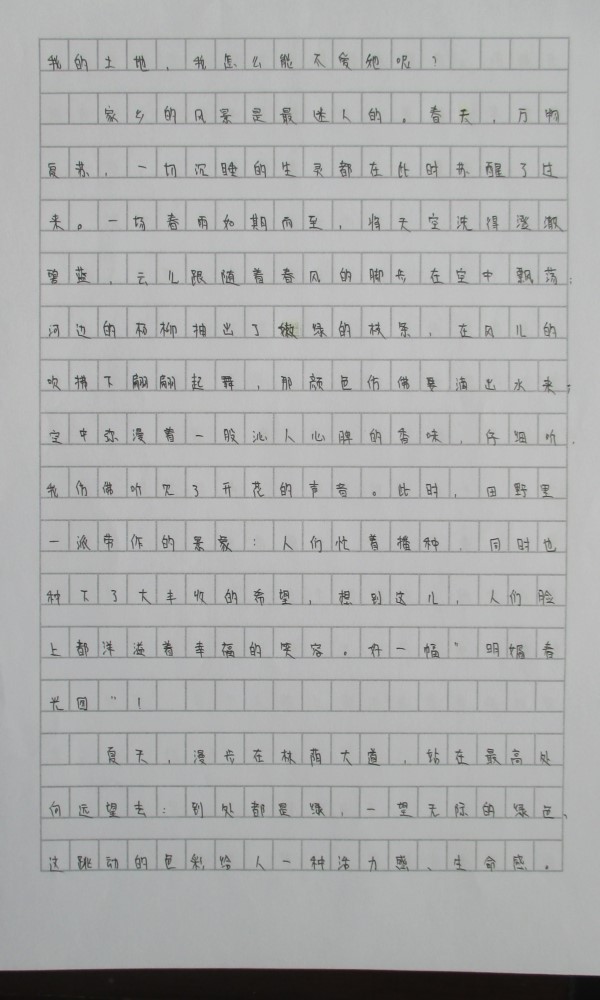 我的土地，我怎么能不爱她呢？
家乡的风景是最迷人的。春天，万物
复苏，一切沉睡的生灵都在此时苏醒了过
来。一场春雨如期而至，将天空洗得澄澈
碧蓝，云儿跟随着春风的脚步在空中飘荡；
河边的杨柳抽出了嫩绿的枝条，在风儿的
吹拂下翩翩起舞，那颜色仿佛要滴出水来；
空中弥漫着一股沁人心脾的香味，仔细听，
我仿佛听见了开花的声音。此时，田野里
一派带作的景象：人们忙着播种，同时也
种下了大丰收的希望，想到这儿，人们脸
上都洋溢着幸福的笑容。好一幅“明媚春
光图”！
夏天，漫步在林荫大道，站在最高处
向远望去：到处都是绿，一望无际的绿色，
这跳动的色彩给人一种活力感、生命感。